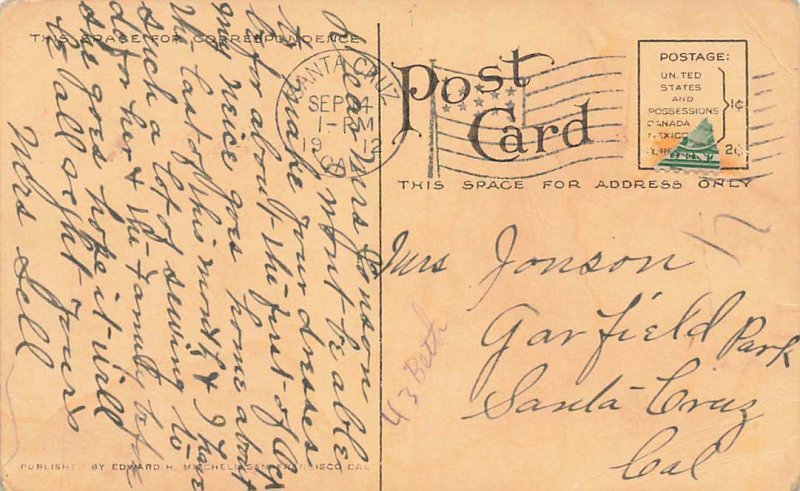 THIS SPACE FOR CORRESPONDENCE
Dear Mrs Jonson
I wont be able
to make your dresses
before about the first of Oct
my neice goes home about
the last of this month & I have
such a lot of sewing to
do for her & the family before
she goes hope it will
be all right Yours
Mrs Sell
SANTA CRUZ
SEP 24
1-PM
1912
CAL
Post
Card
POSTAGE:
UNITED
STATES
AND
POSSESSIONS
CANADA
MEXICO
1¢
2¢
THIS SPACE FOR ADDRESS ONLY
Mrs Jonson
Garfield Park
Santa Cruz
Cal
43 Beth
17
PUBLISHED BY EDWARD H. MITCHELL, SAN FRANCISCO, CAL